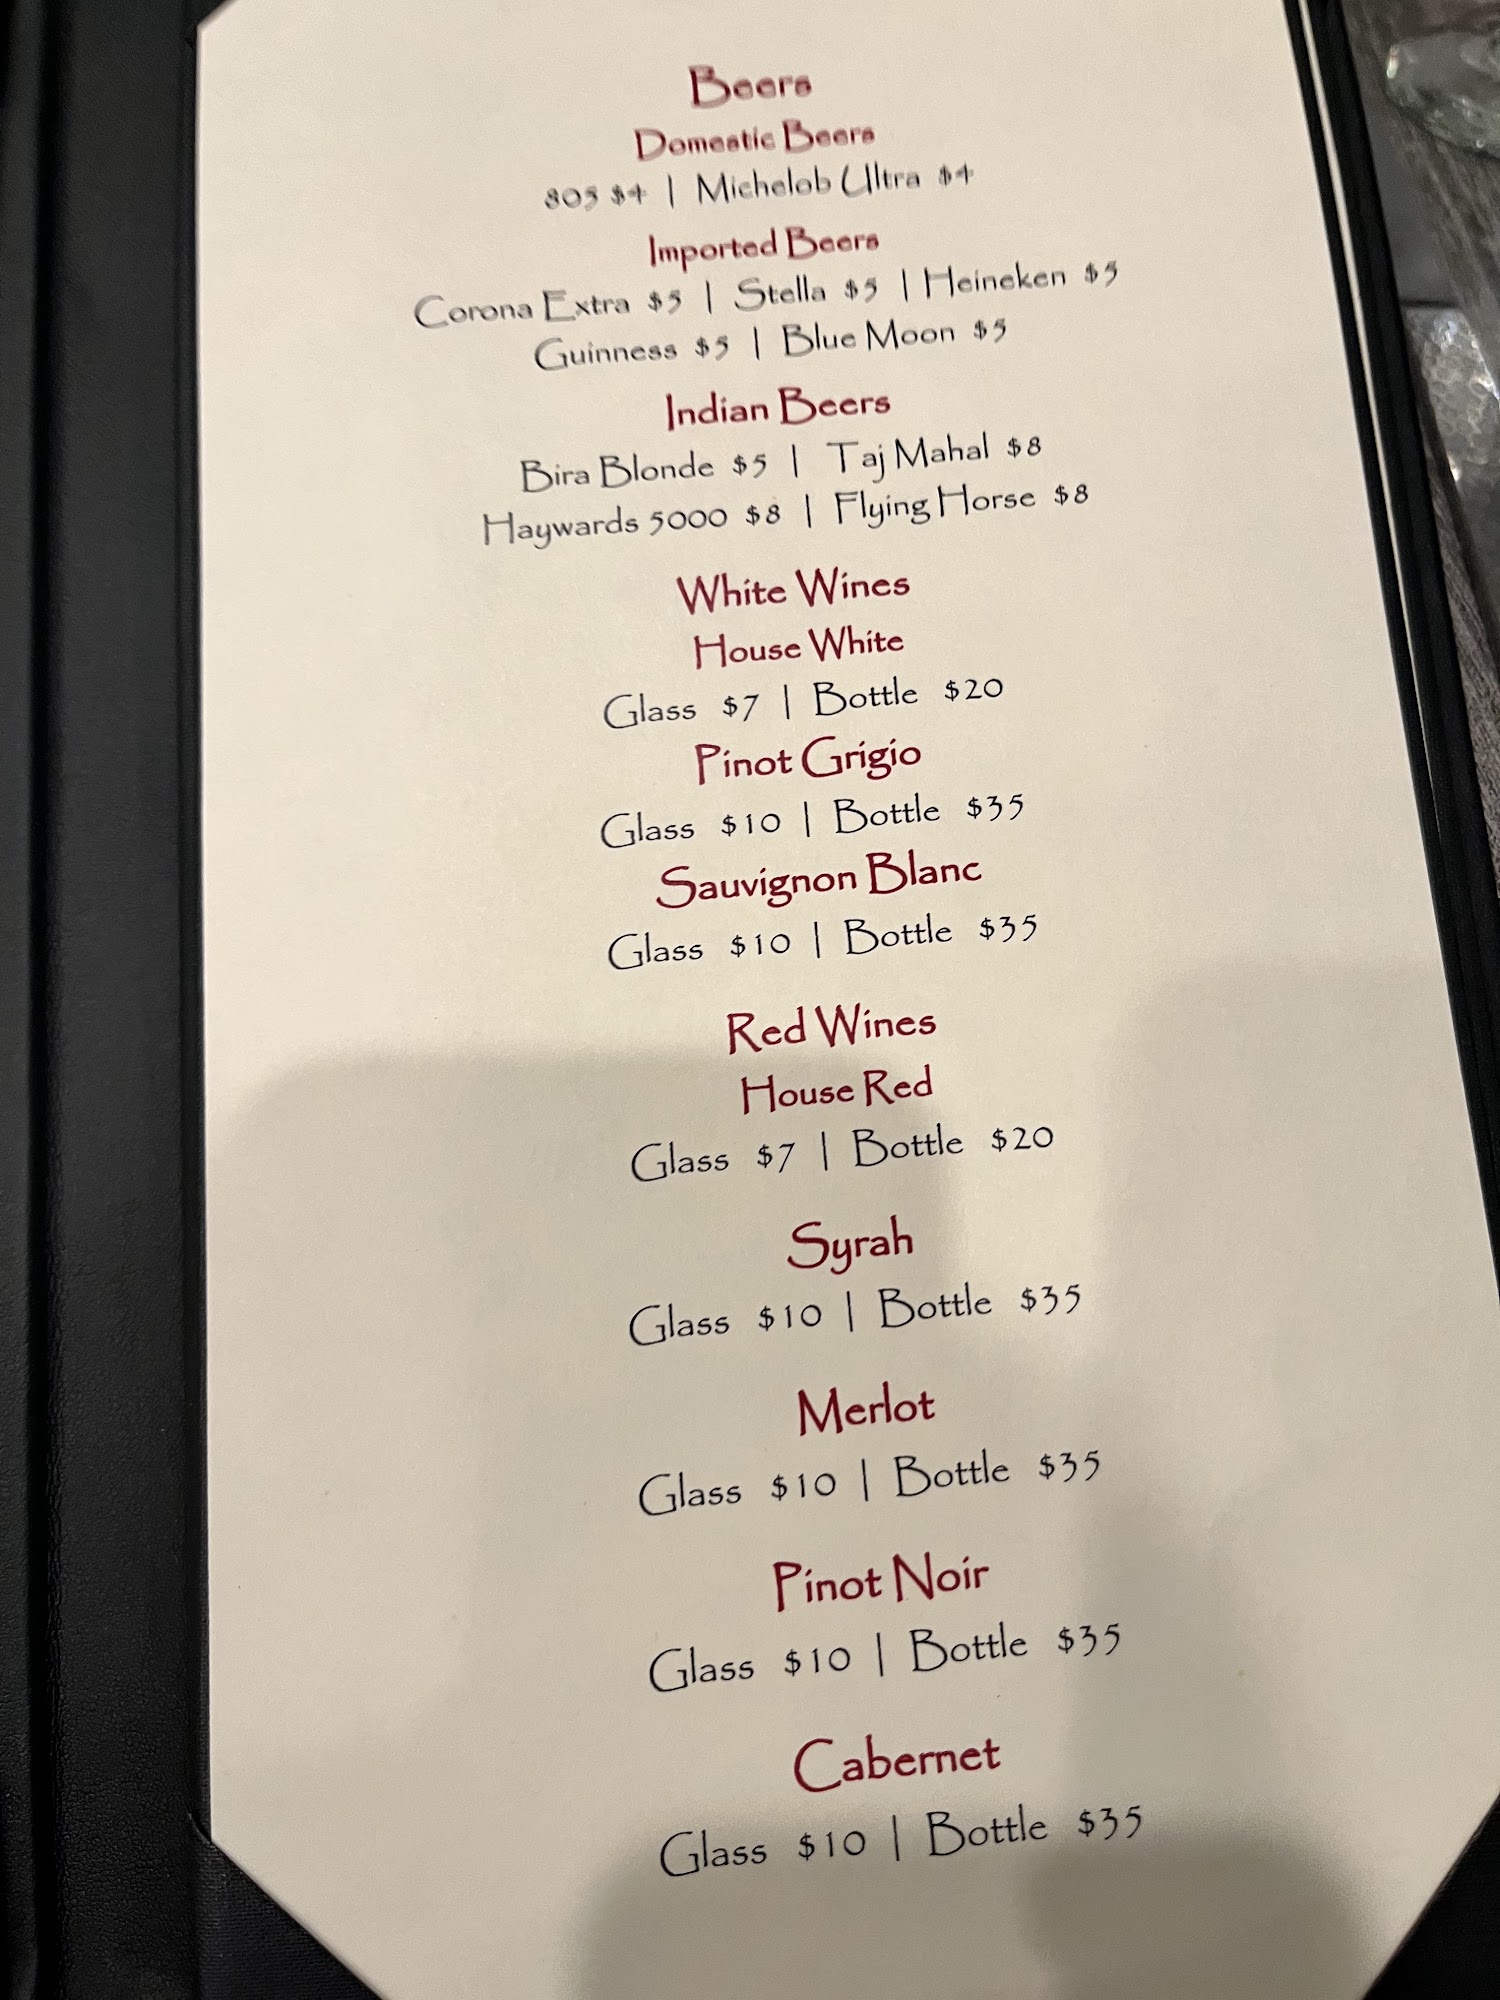 Beers
Domestic Beers
805 $4 | Michelob Ultra $4
Imported Beers
Corona Extra $5 | Stella $5 | Heineken $5
Guinness $5 | Blue Moon $5
Indian Beers
Bira Blonde $5 | Taj Mahal $8
Haywards 5000 $8 | Flying Horse $8
White Wines
House White
Glass $7 | Bottle $20
Pinot Grigio
Glass $10 | Bottle $35
Sauvignon Blanc
Glass $10 | Bottle $35
Red Wines
House Red
Glass $7 | Bottle $20
Syrah
Glass $10 | Bottle $35
Merlot
Glass $10 | Bottle $35
Pinot Noir
Glass $10 | Bottle $35
Cabernet
Glass $10 | Bottle $35